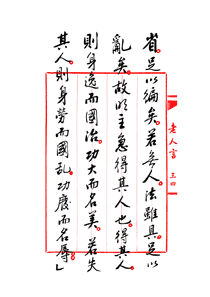 省足以編矣若無人法雖具足以
亂矣故明主急得其人也得其人
則身逸而國治功大而名美若失
其人則身勞而國亂功廢而名辱」
老人言 三四